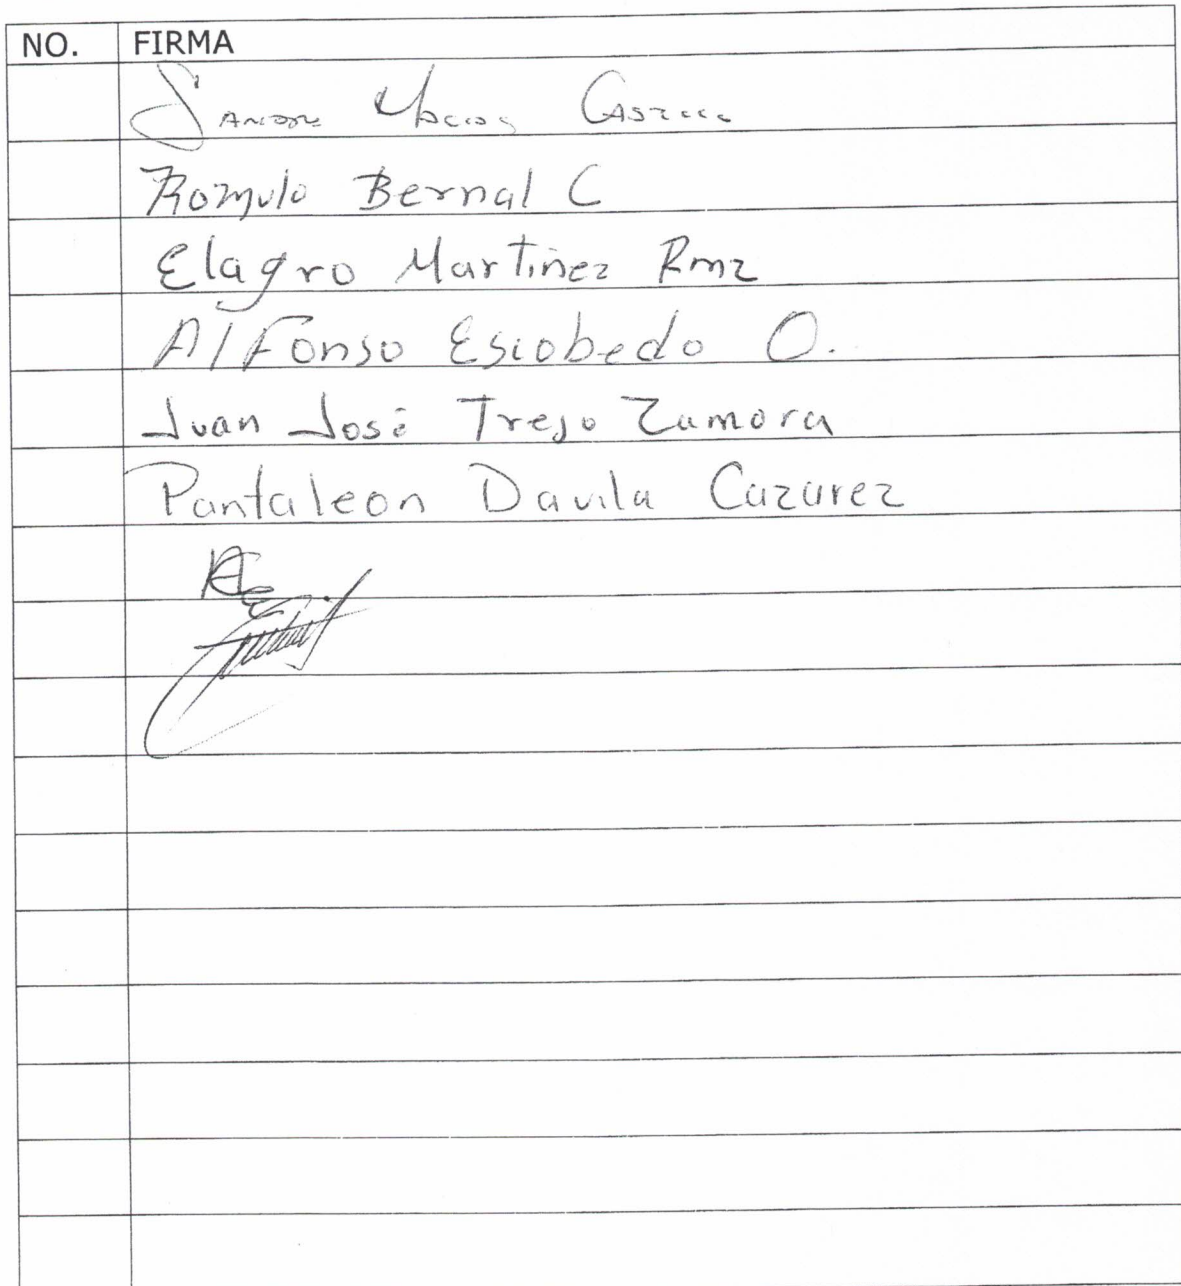 NO. FIRMA
Romulo Bernal C
Elagro Martinez Rmz
Alfonso Escobedo O.
Juan José Trejo Zamora
Pantaleon Davila Cazarez